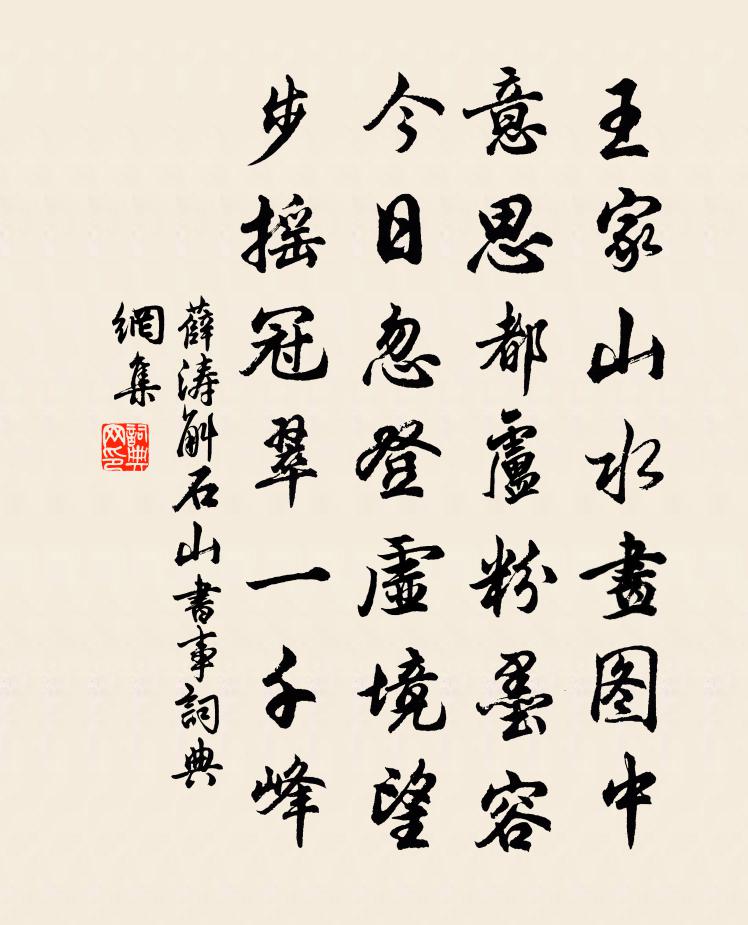 王家山水畫图中
意思都盧粉墨容
今日忽登虛境望
步摇冠翠一千峰
薛涛斛石山書事詞典
網集
詞典
网印